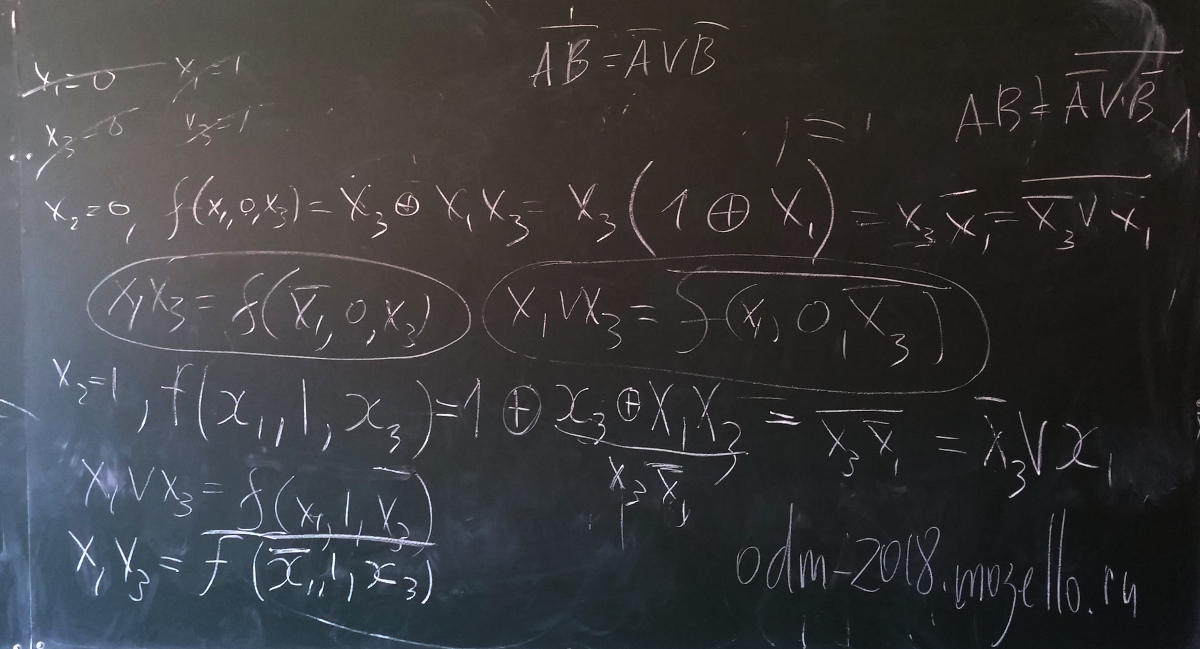 x̶₁̶=̶0̶ x̶₁̶=̶1̶
x̶₃̶=̶0̶ x̶₃̶=̶1̶
\overline{AB} = \overline{A} ∨ \overline{B}
AB = \overline{\overline{A} ∨ \overline{B}}
x₂=0, f(x₁,0,x₃) = x₃ ⊕ x₁x₃ = x₃(1 ⊕ x₁) = x₃\overline{x₁} = \overline{\overline{x₃} ∨ x₁}
x₁x₃ = f(\overline{x₁}, 0, x₃) x₁∨x₃ = \overline{f(x₁, 0, \overline{x₃})}
x₂=1, f(x₁,1,x₃) = 1 ⊕ x₃ ⊕ x₁x₃ = \overline{x₃\overline{x₁}} = \overline{x₃} ∨ x₁
x₃\overline{x₁}
x₁∨x₃ = f(x₁,1,\overline{x₃})
x₁x₃ = \overline{f(\overline{x₁},1,x₃)}
odm-2018.mozello.ru